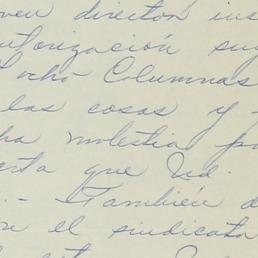 ven director ins
utorización su
Ocho Columnas
las cosas y
ha molestia p
erta que Ud.
.- También d
n el sindicato